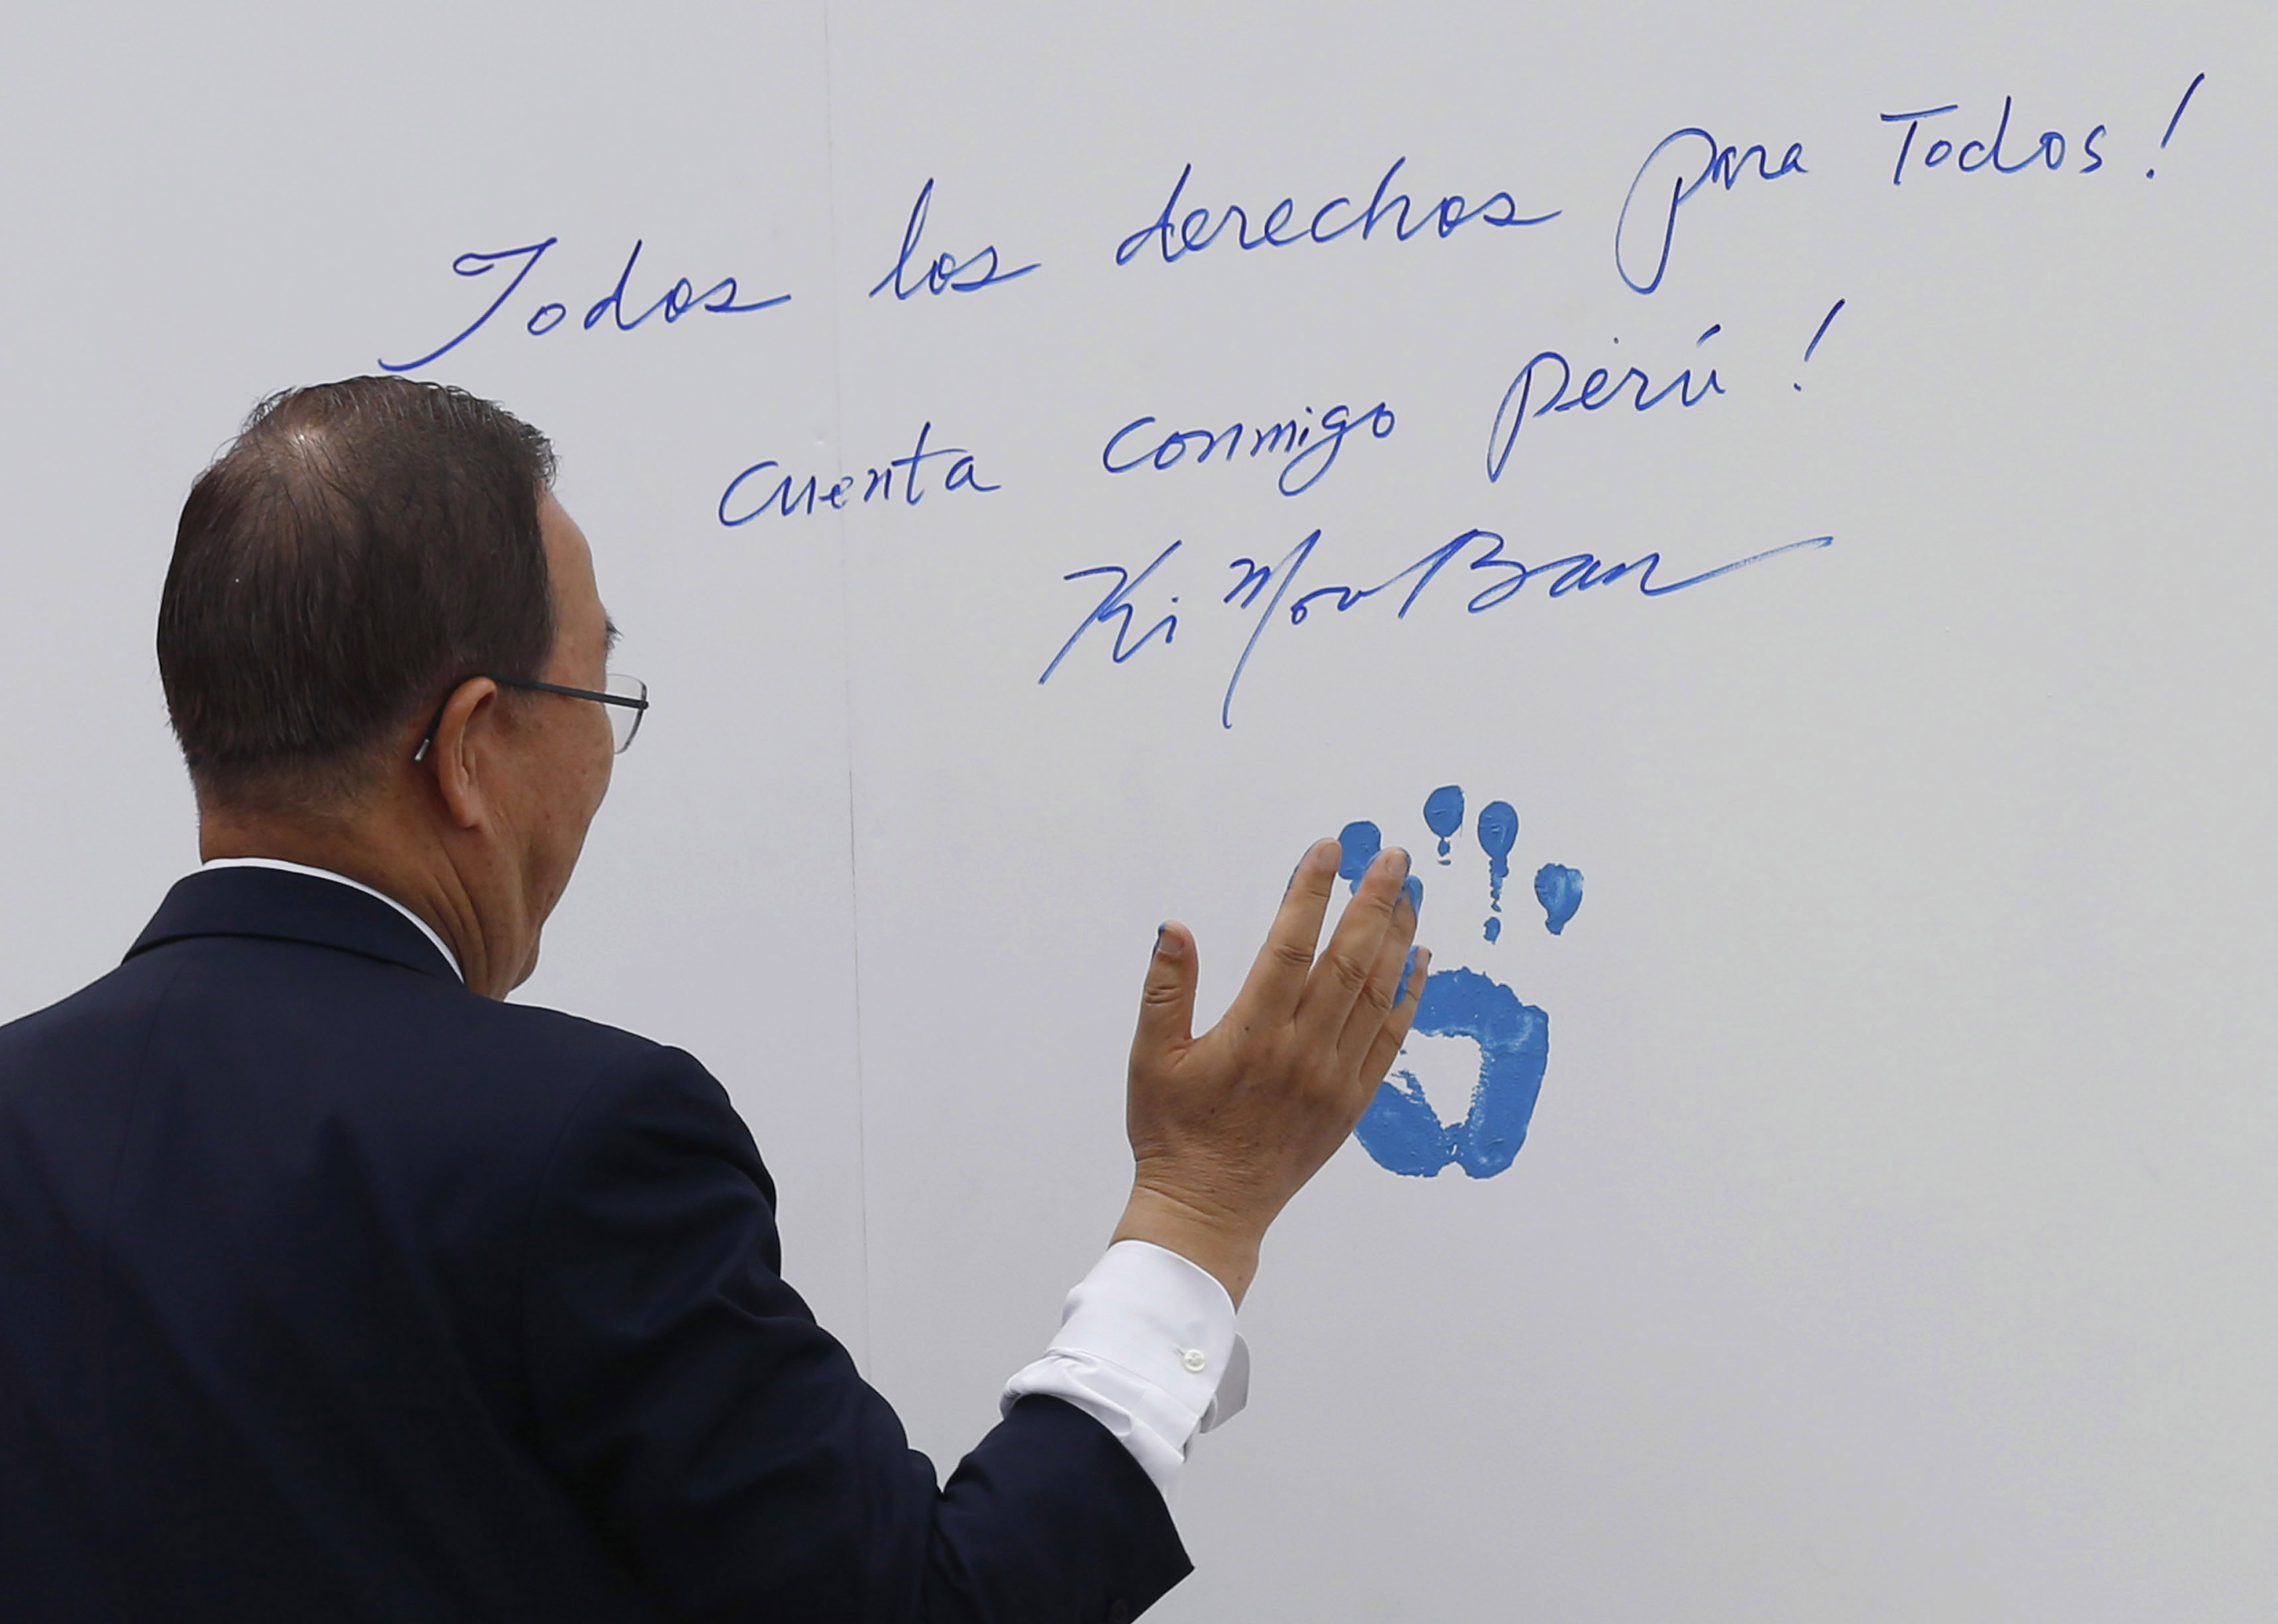 Todos los derechos para Todos!
cuenta conmigo Perú!
Ki Moon Ban